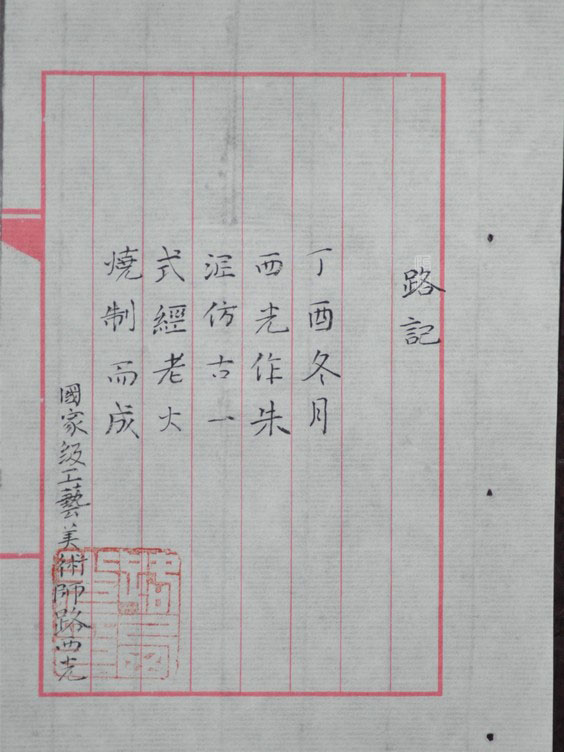 路記
丁酉冬月
西光作朱
泥仿古一
式經老火
燒制而成
國家级工藝美術師路西光